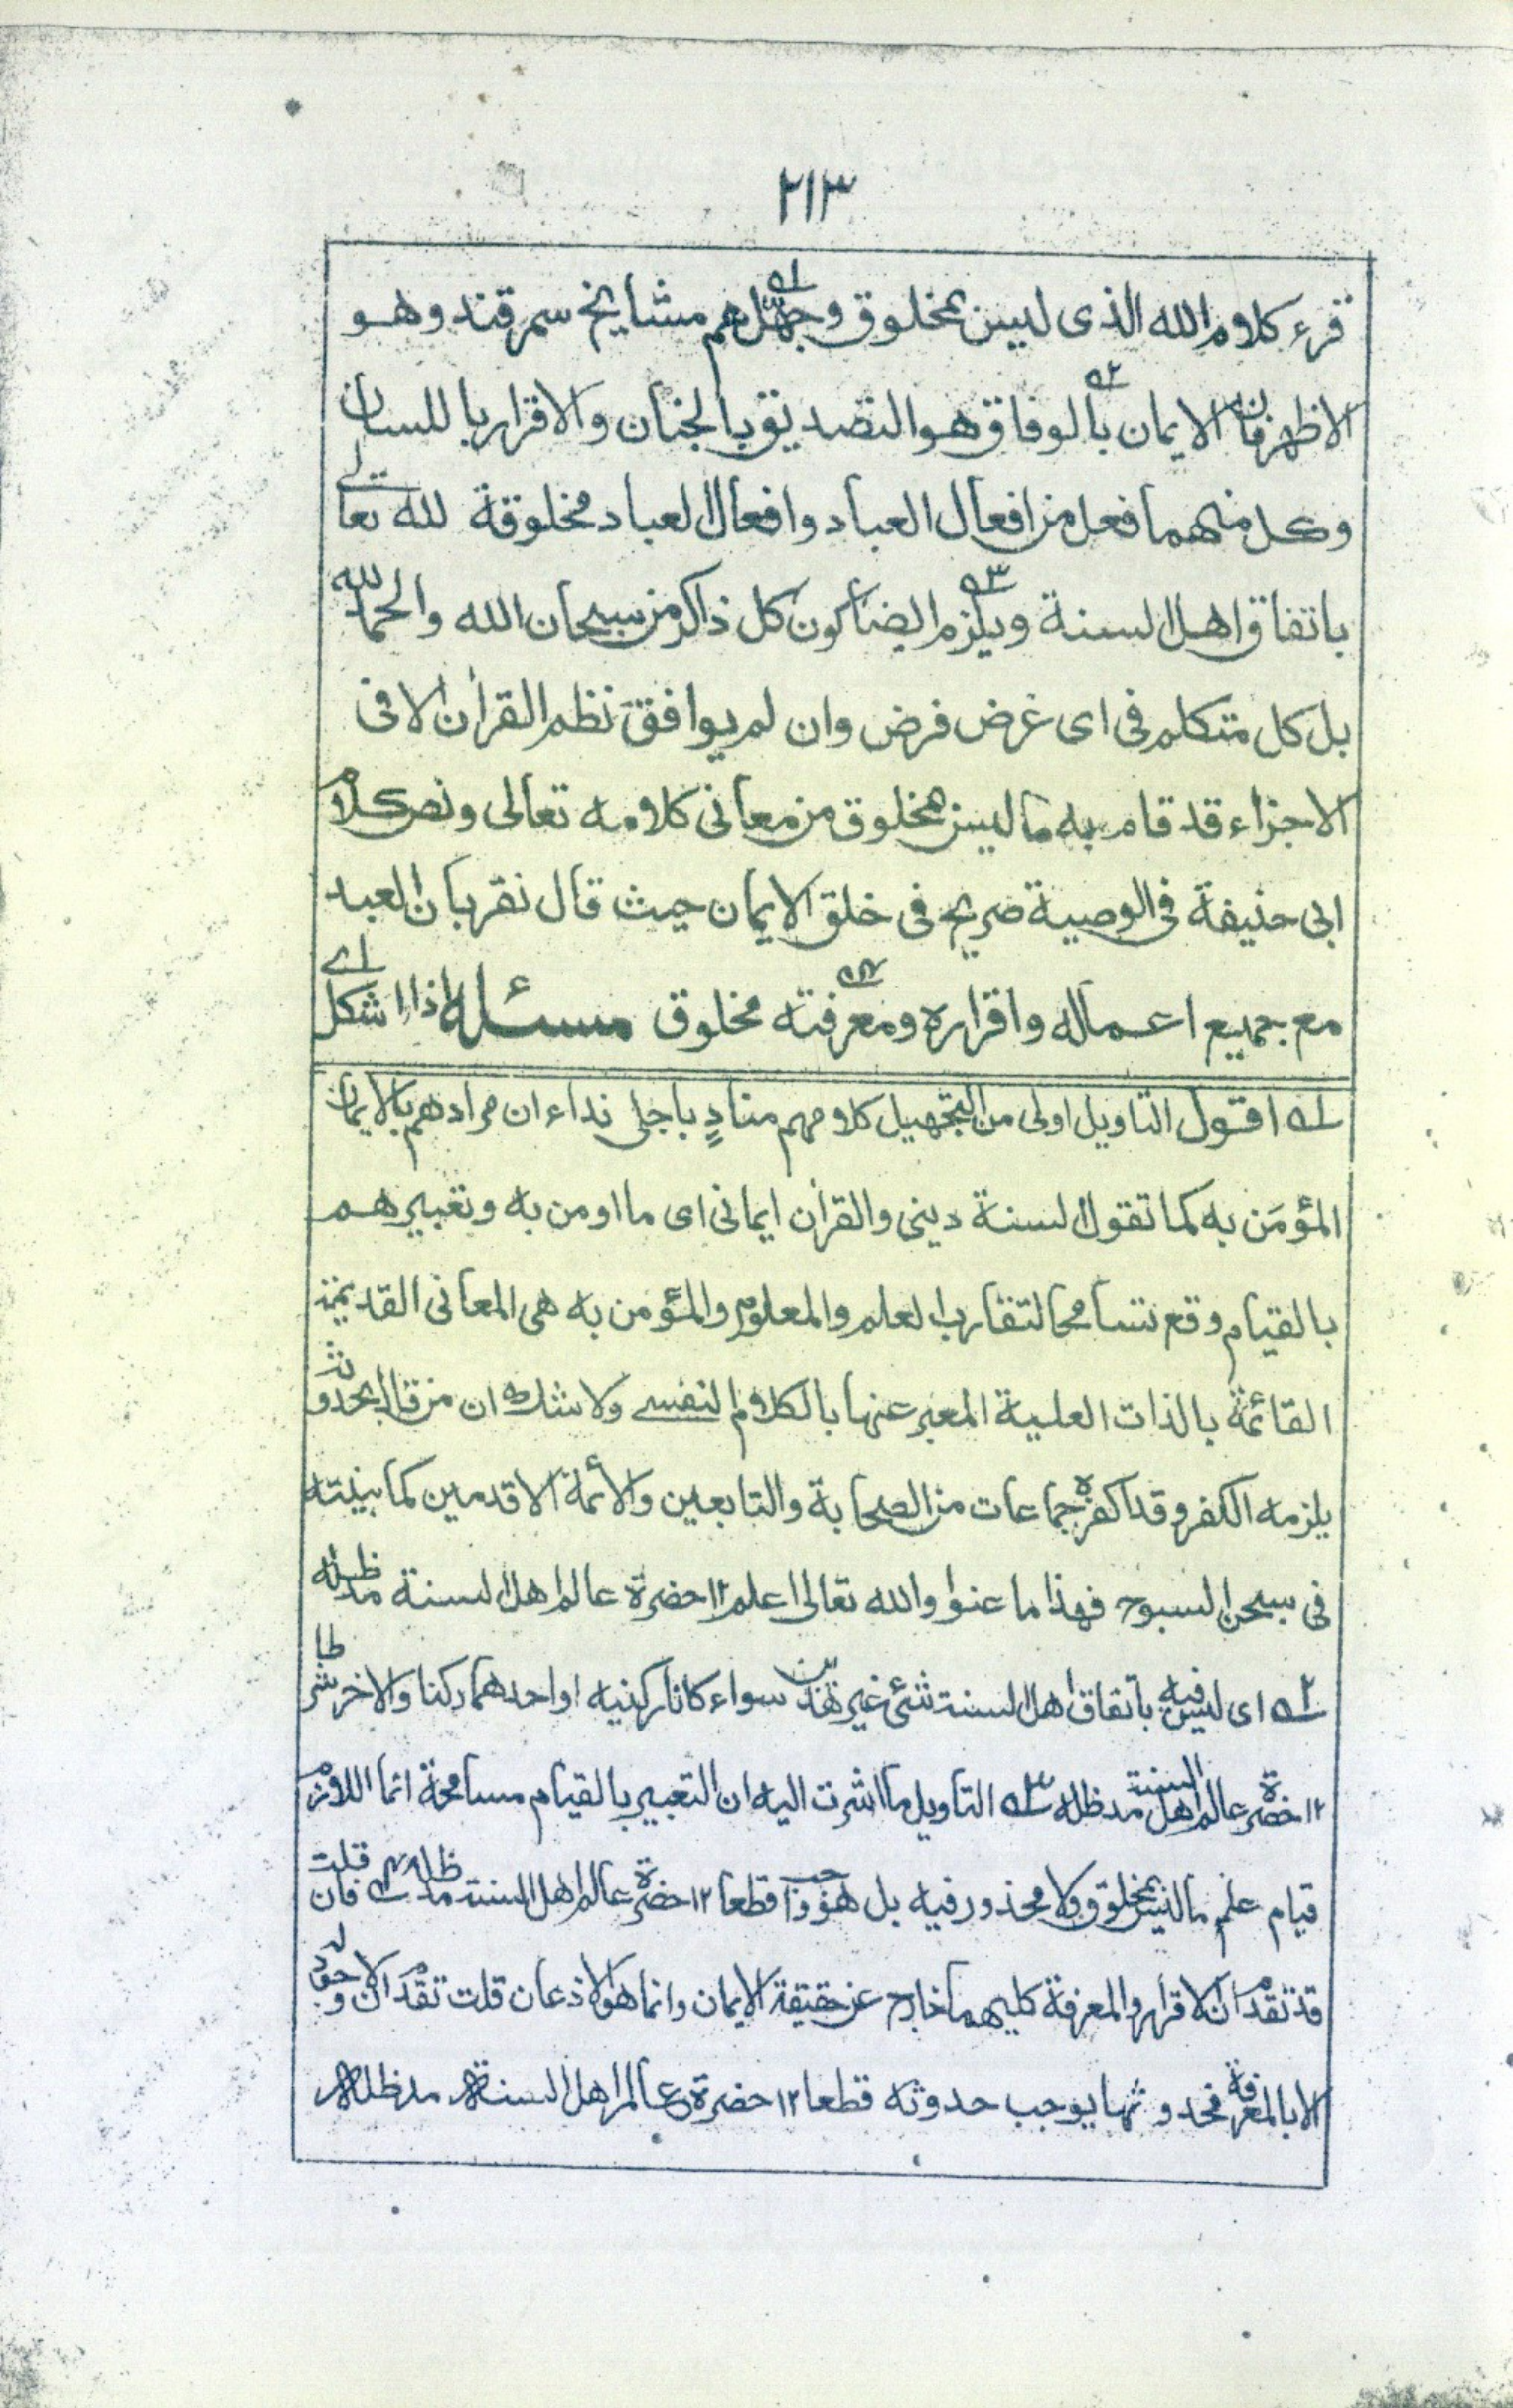 ٢١٣
قرء كلام الله الذى ليس بمخلوق وجهّلهم ١ه مشايخ سمرقند وهو
الاظهر فان الايمان بالوفاق ٢ه هو التصديق بالجنان والاقرار باللسان
وكل منهما فعل من افعال العباد وافعال العباد مخلوقة لله تعالى
باتفاق اهل السنة ويلزم ٣ه ايضا كون كل ذاكر من سبحان الله والحمد لله
بل كل متكلم فى اى غرض فرض وان لم يوافق نظم القرأن الا فى
الاجزاء قد قام به ما ليس بمخلوق من معانى كلامه تعالى ونص كلام
ابى حنيفة فى الوصية صريح فى خلق الايمان حيث قال نقر بان العبد
مع جميع اعماله واقراره ومعرفته ٤ه مخلوق مسئلة اذا اشكل اى
١ه اقول التاويل اولى من التجهيل كلامهم منادٍ باجلى نداء ان مرادهم بالايمان
المؤمَن به كما تقول السنة دينى والقرأن ايمانى اى ما اومن به وتعبيرهم
بالقيام وقع تسامحا لتقارب العلم والمعلوم والمؤمن به هى المعانى القديمة
القائمة بالذات العلية المعبر عنها بالكلام النفسے ولا شك ان من قال بحدوثه
يلزمه الكفر وقد اكفره جماعات من الصحابة والتابعين والأئمة الاقدمين كما بينته
فى سبحن السبوح فهذا ما عنوا والله تعالى اعلم ١٢ حضرة عالم اهل السنة مدظله
٢ه اى ليس فيه باتفاق اهل السنة شئ غير هذين سواء كانا ركنيه او احدهما ركنا والاخر شرطا
١٢ حضرة عالم اهل السنة مدظله ٣ه التاويل ما اشرت اليه ان التعبير بالقيام مسامحة انما اللازم
قيام علم ما ليس بمخلوق ولا محذور فيه بل هو واجب قطعا ١٢ حضرة عالم اهل السنة مدظله ٤ه فان قلت
قد تقدم ان الاقرار والمعرفة كليهما خارج عن حقيقة الايمان وانما هو الاذعان قلت تقدم ان لا وجود له
الا بالمعرفة فحدوثها يوجب حدوثه قطعا ١٢ حضرة عالم اهل السنة مدظله